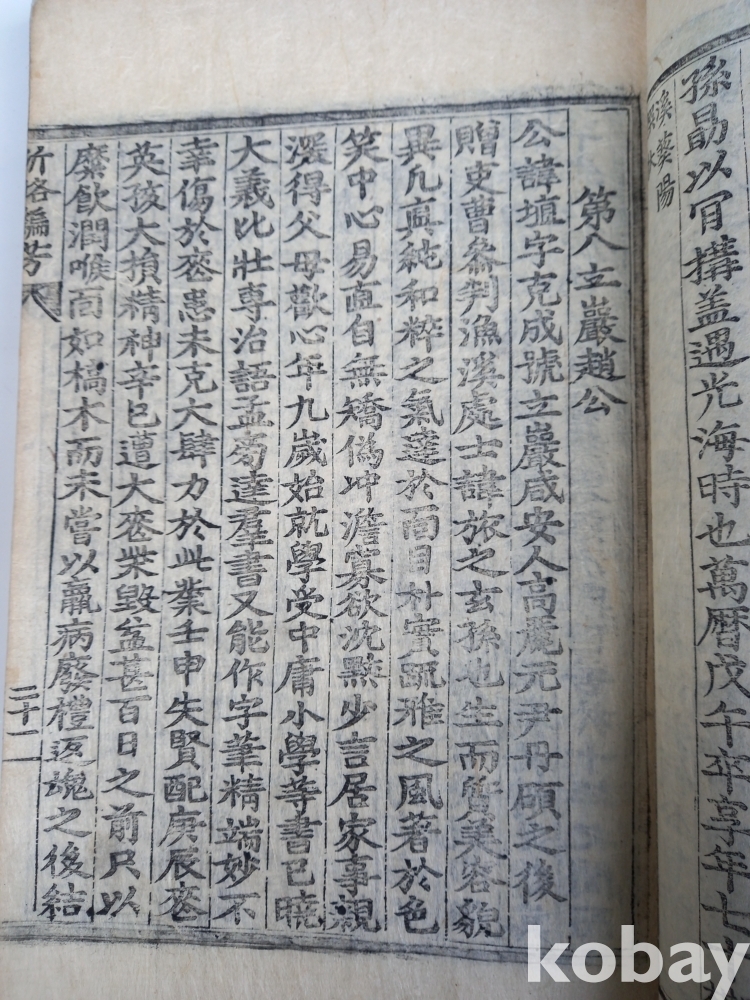 孫勗以冐構盖遇光海時也萬曆戊午卒享年七
第八立巖趙公
公諱埴字克成號立巖咸安人高麗元尹丹碩之後
贈吏曹叅判漁溪處士諱旅之玄孫也生而質美容貌
異凡眞純和粹之氣達於面目朴實踈雅之風著於色
笑中心易直自無矯僞冲澹寡欲沈黙少言居家事親
深得父母歡心年九歲始就學受中庸小學等書已曉
大義比壯專治語孟旁達羣書又能作字筆精端妙不
幸傷於喪患未克大肆力於此業壬申失賢配庚辰喪
英孩大損精神辛巳遭大喪柴毀益甚百日之前只以
糜飮潤喉面如槁木而未嘗以羸病廢禮返魂之後結
編芳 二十一
kobay